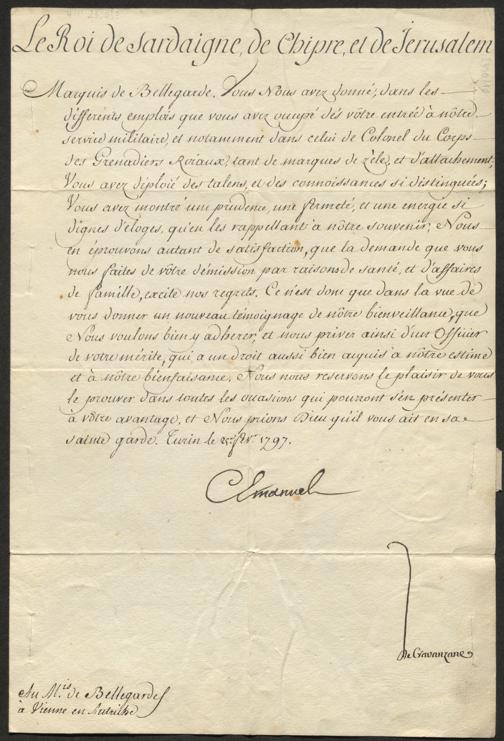 Le Roi de Sardaigne, de Chipre, et de Jerusalem
Marquis de Bellegarde. Vous Nous avez donné, dans les
différents emplois que vous avez occupé dés vôtre entrée à nôtre
service militaire, et notamment dans celui de Colonel du Corps
des Grenadiers Roiaux, tant de marques de zéle, et d'attachement;
Vous avez déploié des talens, et des connoissances si distinguées;
Vous avez montré une prudence, une fermeté, et une energie si
dignes d'éloges, qu'en les rappellant à nôtre souvenir, Nous
en éprouvons autant de satisfaction, que la demande que vous
nous faites de vôtre démission par raisons de santé, et d'affaires
de famille, excite nos regrets. Ce n'est donc que dans la vue de
vous donner un nouveau témoignage de nôtre bienveillance, que
Nous voulons bien y adherer, et nous priver ainsi d'un Officier
de votre mérite, qui a un droit aussi bien acquis à nôtre estime
et à nôtre bienfaisance. Nous nous reservons le plaisir de vous
le prouver dans toutes les occasions qui pourront s'en présenter
à vôtre avantage, et Nous prions Dieu qu'il vous ait en sa
sainte garde. Turin le 1797.
CEmanuel
De Cravanzane
Au M.is de Bellegarde
à Vienne en Autriche